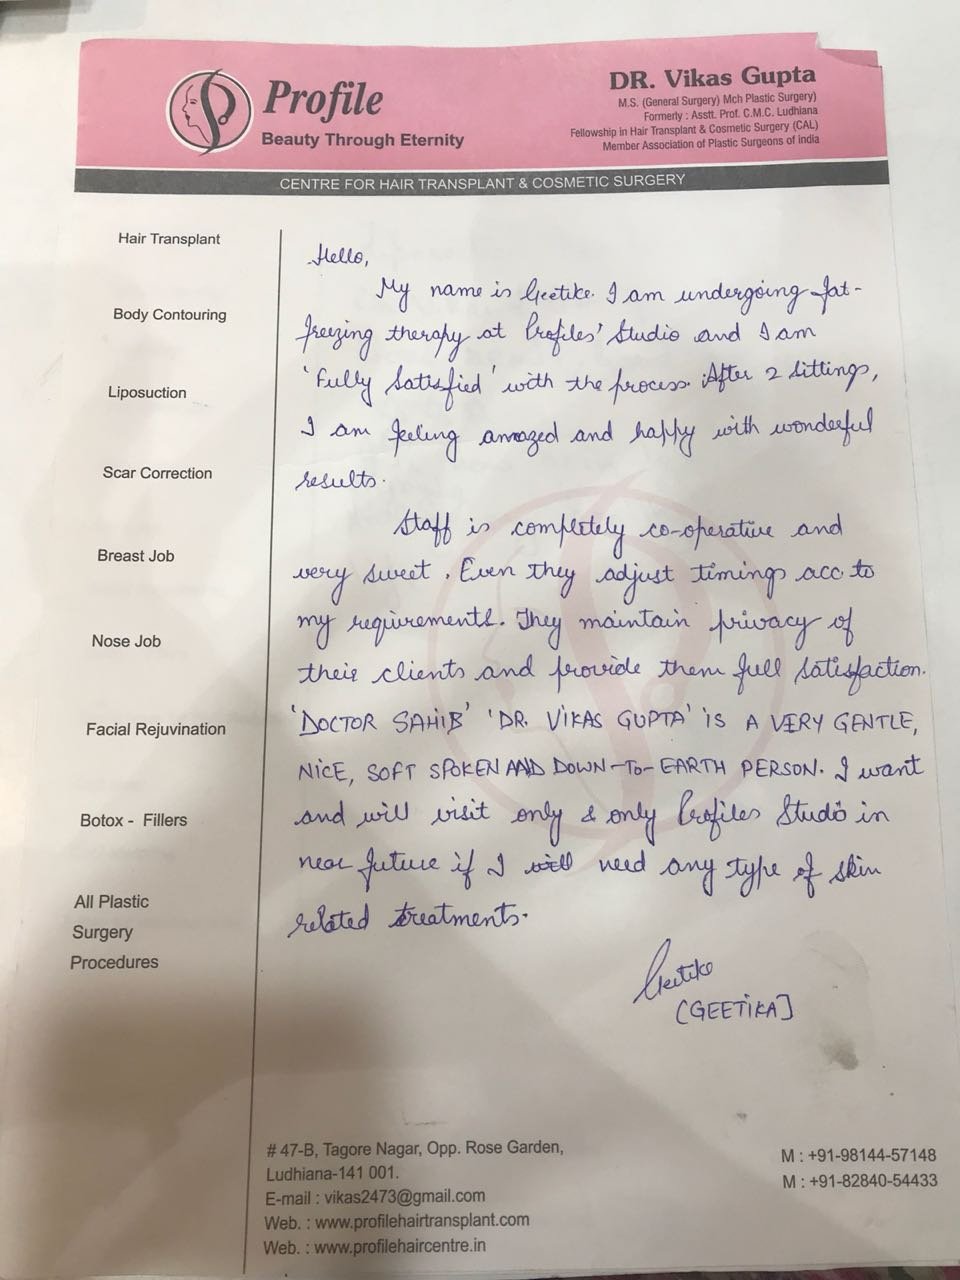 Profile
Beauty Through Eternity
DR. Vikas Gupta
M.S. (General Surgery) Mch Plastic Surgery)
Formerly : Asstt. Prof. C.M.C. Ludhiana
Fellowship in Hair Transplant & Cosmetic Surgery (CAL)
Member Association of Plastic Surgeons of india
CENTRE FOR HAIR TRANSPLANT & COSMETIC SURGERY
Hair Transplant
Body Contouring
Liposuction
Scar Correction
Breast Job
Nose Job
Facial Rejuvination
Botox - Fillers
All Plastic
Surgery
Procedures
Hello,
My name is Geetika. I am undergoing fat-
freezing therapy at Profiles' Studio and I am
'Fully Satisfied' with the process. After 2 sittings,
I am feeling amazed and happy with wonderful
results.
Staff is completely co-operative and
very sweet. Even they adjust timings acc to
my requirements. They maintain privacy of
their clients and provide them full satisfaction.
'DOCTOR SAHIB' 'DR. VIKAS GUPTA' IS A VERY GENTLE,
NICE, SOFT SPOKEN AND DOWN-TO-EARTH PERSON. I want
and will visit only & only Profiles Studio in
near future if I will need any type of skin
related treatments.
Geetika
[GEETIKA]
# 47-B, Tagore Nagar, Opp. Rose Garden,
Ludhiana-141 001.
E-mail : vikas2473@gmail.com
Web. : www.profilehairtransplant.com
Web. : www.profilehaircentre.in
M : +91-98144-57148
M : +91-82840-54433